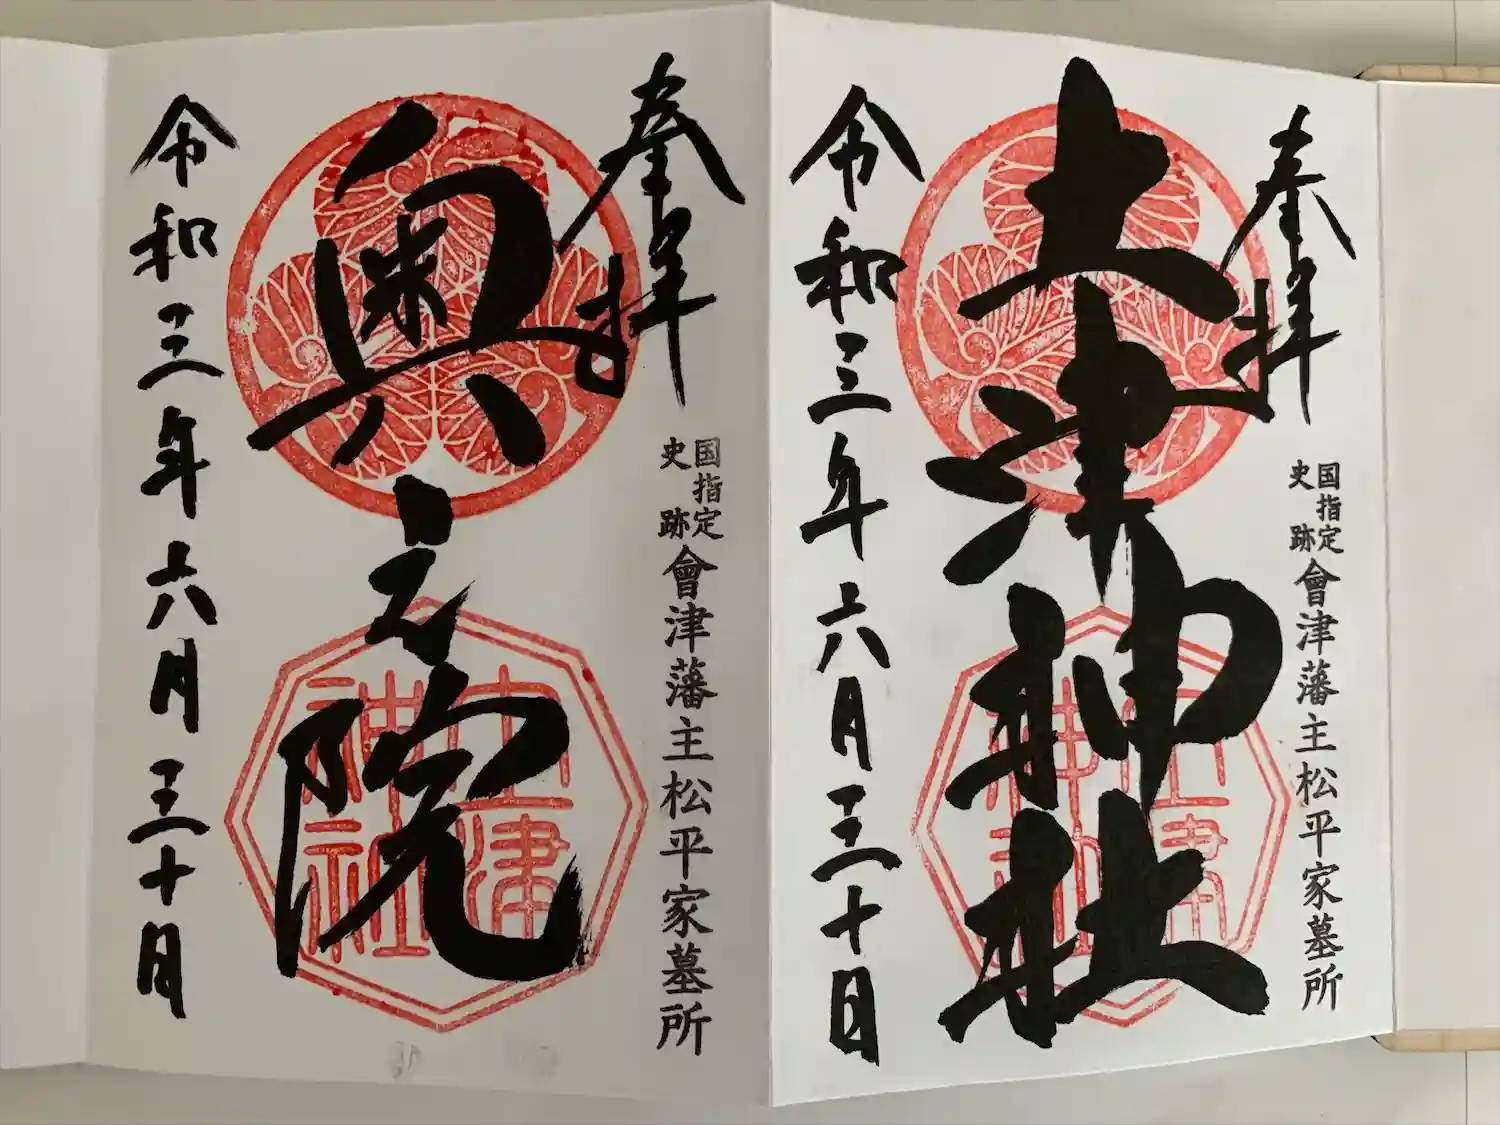 奉拝
国指定
史跡
會津藩主松平家墓所
土津神社
土津
神社
令和三年六月三十日
奉拝
国指定
史跡
會津藩主松平家墓所
奥之院
土津
神社
令和三年六月三十日